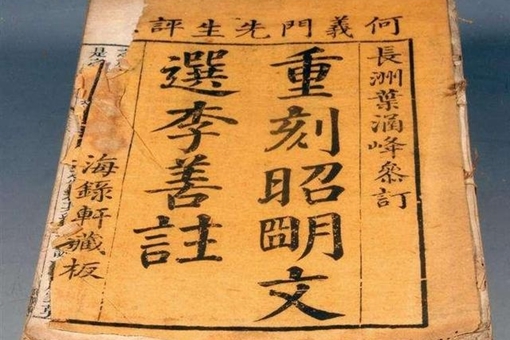 何義門先生評
長洲葉涵峰叅訂
重刻昭朙文
選李善註
海錄軒藏板